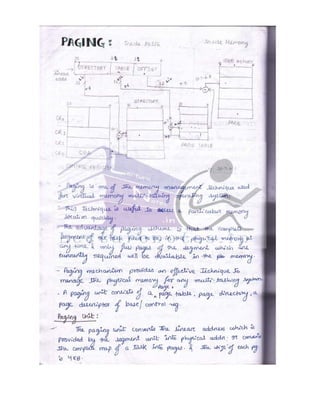 PAGING: Inside 80386 Inside Memory
USER MEMORY
DIRECTORY TABLE OFFSET
LINEAR ADDR
DIRECTORY
PAGE
CR0
CR1
CR2
CR3
PAGE TABLE
CONTROL REGISTER
- Paging is one of the memory management technique used
for virtual memory multi-tasking operating system.
- This technique is useful to access a particular memory
location quickly.
- The advantage of paging scheme is that the complete
segment of the task need to be in the physical memory at
any time & only few pages of the segment which are
currently required will be available in the phy memory.
- Paging mechanism provides an effective technique to
manage the physical memory for any multi-tasking system
- A paging unit consists of a page table, page directory, a
page descriptor of base/ control reg.
Paging Unit:
The paging unit converts the linear address which is
provided by the segment unit into physical addr. or converts
the complete map of a task into pages. & the size of each pg
is 4KB.